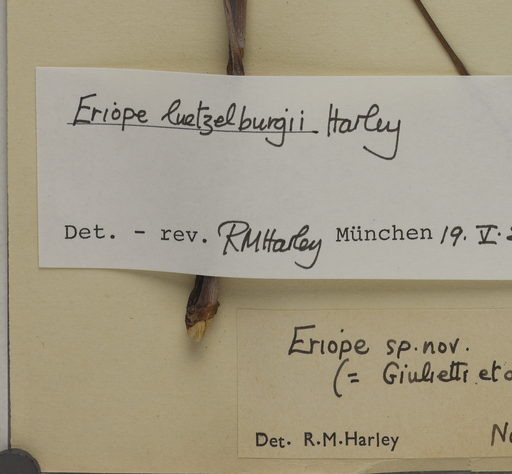 Eriope luetzelburgii Harley
Det. - rev. RMHarley München 19. V.
Eriope sp. nov.
(= Giulietti et
Det. R.M.Harley